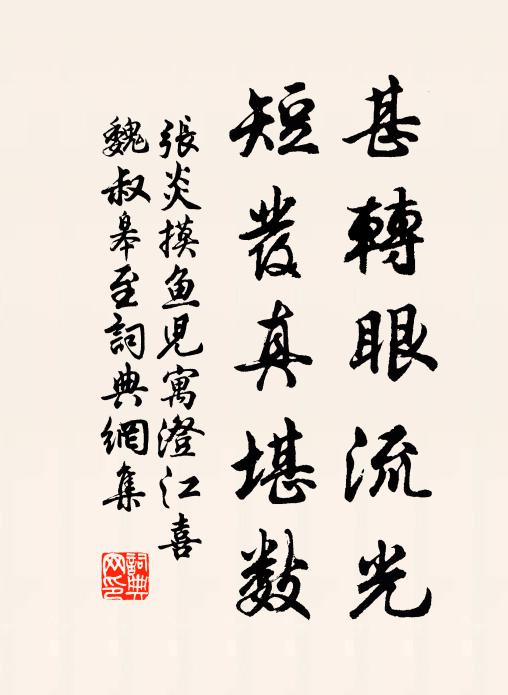 甚轉眼流光
短發真堪數
張炎摸魚兒寓澄江喜
魏叔皋至詞典網集
詞典网印